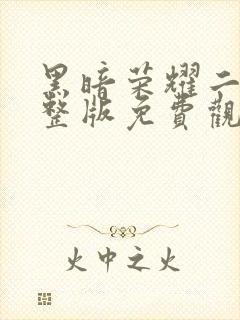 黑暗荣耀二
整版免費觀
火中之火